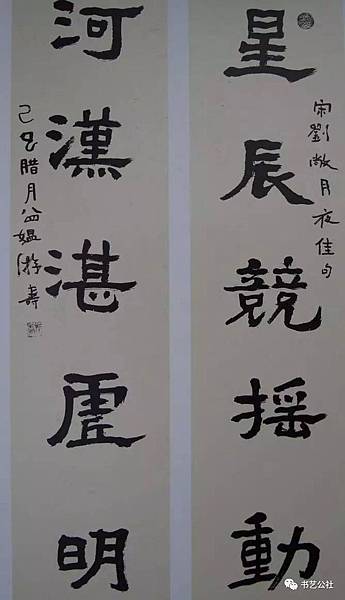 星辰競摇動
宋劉敞月夜佳句
河漢湛虛明
己丑腊月 游壽
书艺公社